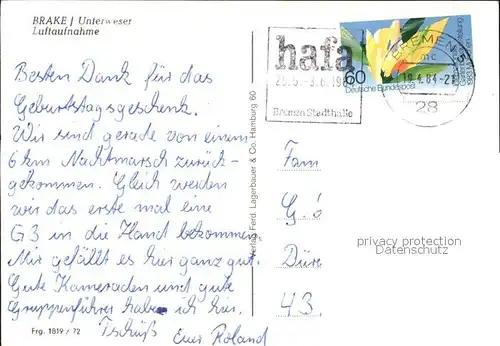 BRAKE / Unterweser
Luftaufnahme
Besten Dank für das
Geburtstagsgeschenk.
Wir sind gerade von einem
6 km Nachtmarsch zurück-
gekommen. Gleich werden
wir das erste mal eine
G3 in die Hand bekommen.
Mir gefällt es hier ganz gut.
Gute Kameraden und gute
Gruppenführer habe ich hier.
Tschüß Euer Roland
Frg. 1819 / 72
Verlag Ferd. Lagerbauer & Co. Hamburg 60
hafa
Bremen Stadthalle
60
Deutsche Bundespost
BREMEN 5
mc
19.4.84-21
28
Fam
G.
Dür
43.
privacy protection
Datenschutz